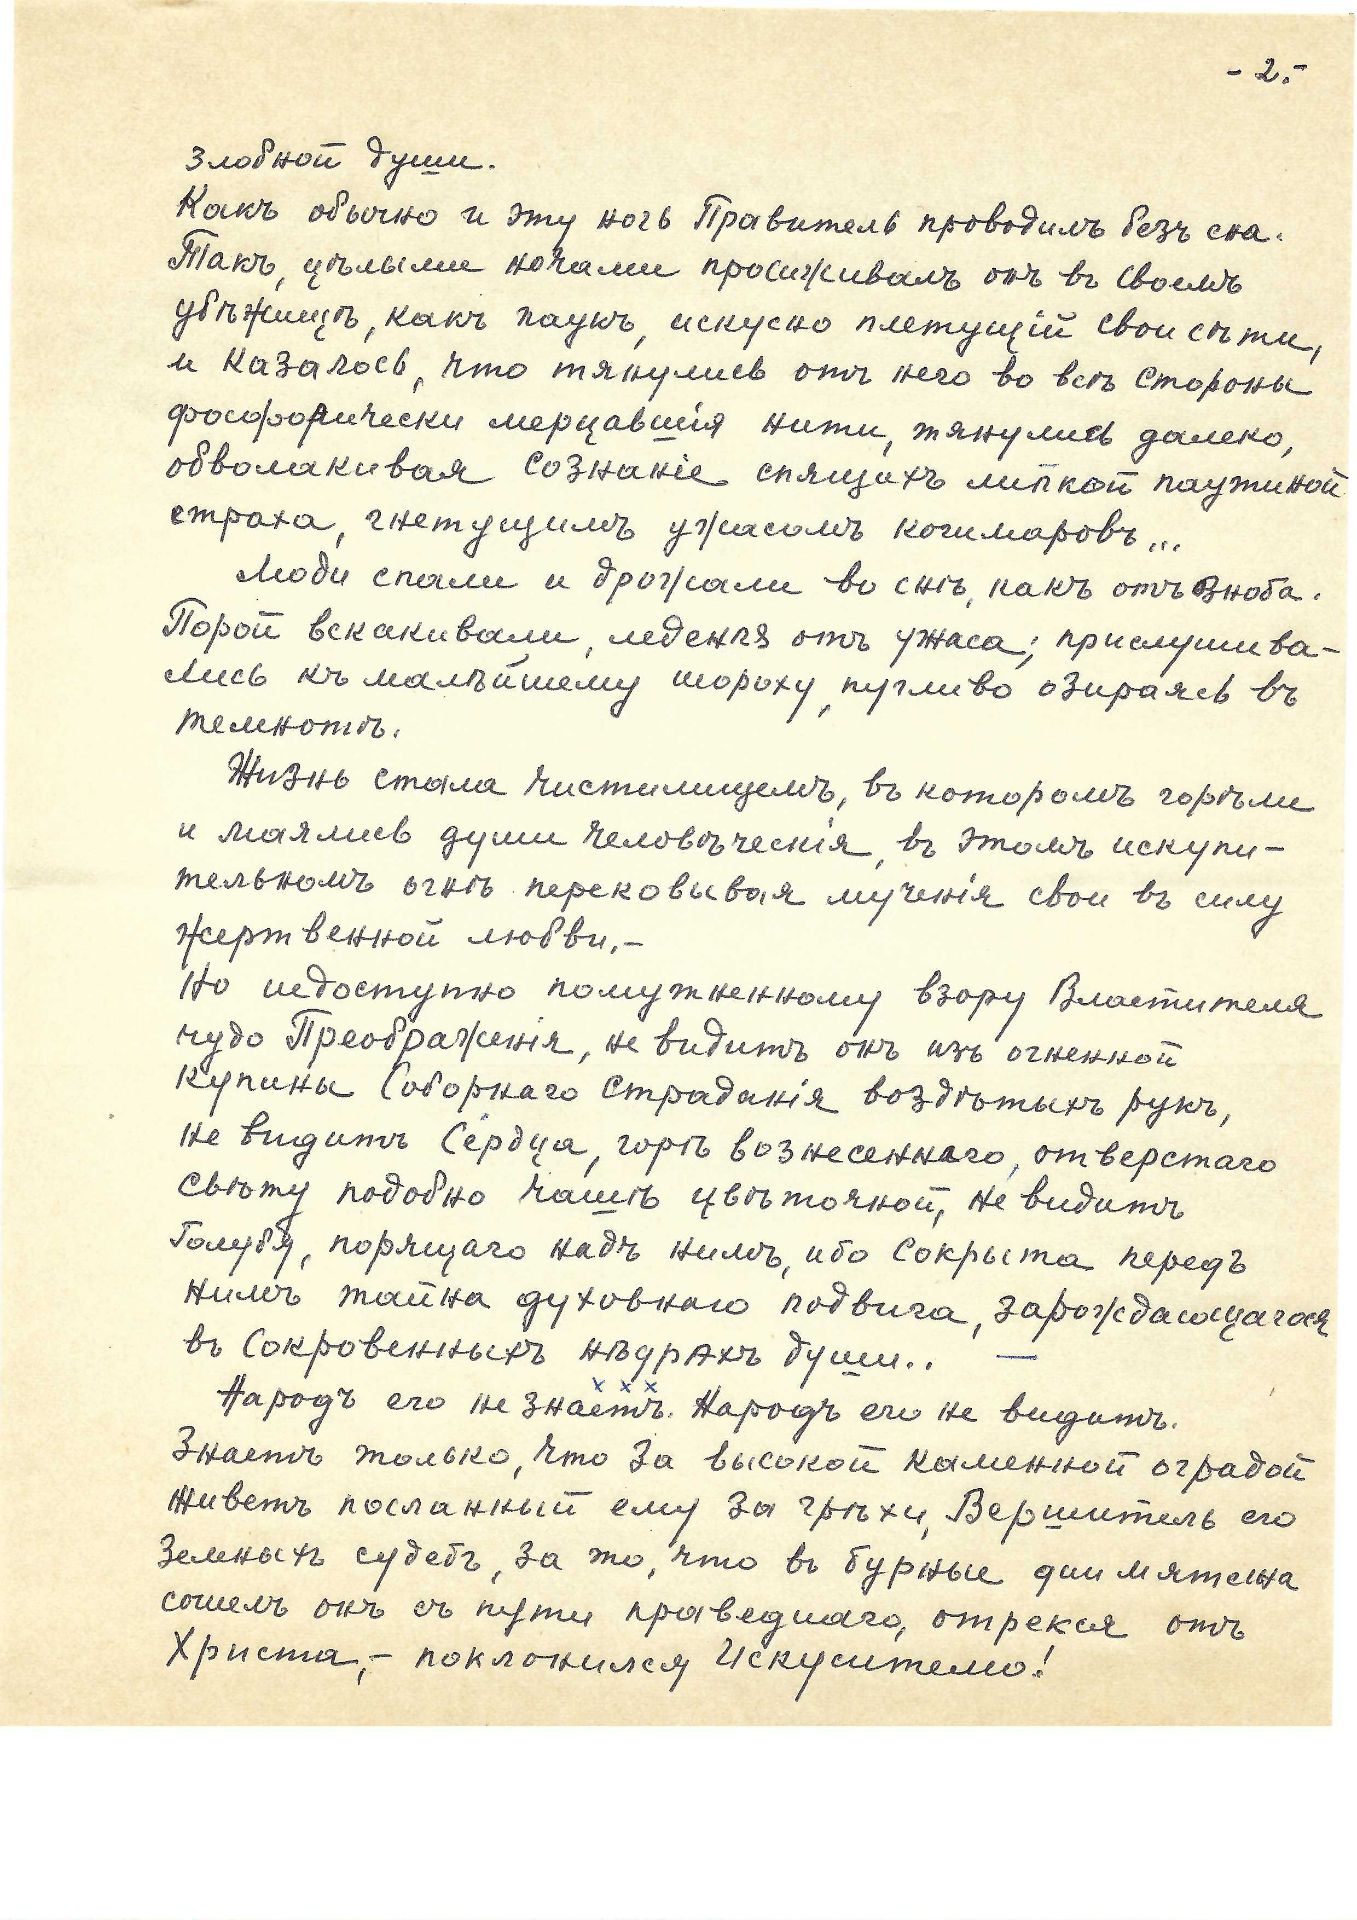 - 2.-
злобной души.
Какъ обычно и эту ночь Правитель проводилъ безъ сна.
Такъ, цѣлыми ночами просиживалъ онъ въ своемъ
убѣжищѣ, какъ паукъ, искусно плетущій свои сѣти,
и казалось, что тянулись отъ него во всѣ стороны
фосфорически мерцавшія нити, тянулись далеко,
обволакивая сознаніе спящихъ липкой паутиной
страха, гнетущимъ ужасомъ кошмаровъ...
Люди спали и дрожали во снѣ, какъ отъ озноба.
Порой вскакивали, леденѣя отъ ужаса; прислушива-
лись къ малѣйшему шороху, пугливо озираясь въ
темнотѣ.
Жизнь стала чистилищемъ, въ которомъ горѣли
и маялись души человѣческія, въ этомъ искупи-
тельномъ огнѣ перековывая мученія свои въ силу
жертвенной любви.-
Но недоступно помутненному взору Властителя
чудо Преображенія, не видитъ онъ изъ огненной
купины Соборнаго Страданія воздѣтыхъ рукъ,
не видитъ Сердца, горѣ вознесеннаго, отверстаго
свѣту подобно чашѣ цвѣточной, не видитъ
Голубя, порящаго надъ нимъ, ибо сокрыта передъ
нимъ тайна духовнаго подвига, зарождающагося
въ сокровенныхъ нѣдрахъ души.. —
x x x
Народъ его не знаетъ. Народъ его не видитъ.
Знаетъ только, что за высокой каменной оградой
живетъ посланный ему за грѣхи, Вершитель его
земныхъ судебъ, за то, что въ бурные дни мятежа
сошелъ онъ съ пути праведнаго, отрекся отъ
Христа,- поклонился Искусителю!